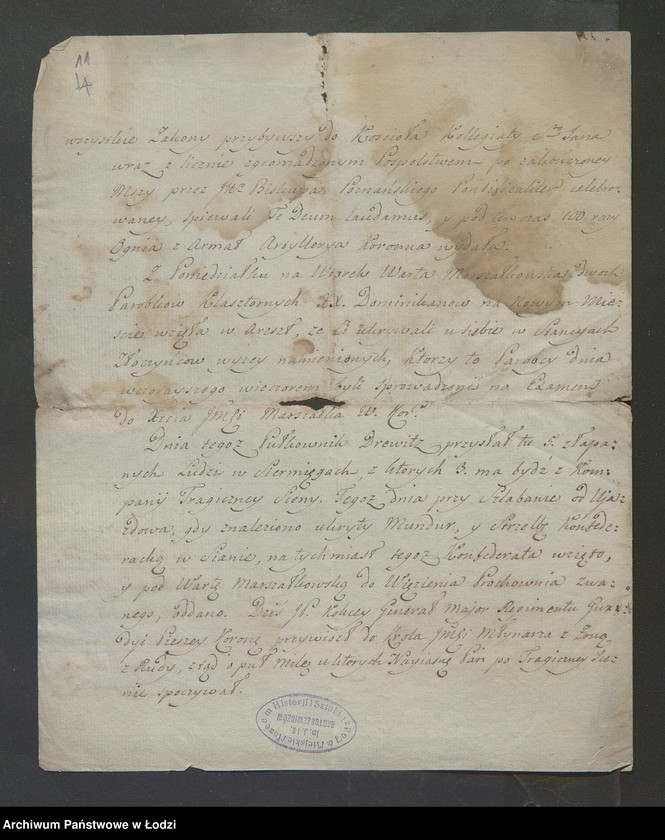 11
14
wszystkie Zakony przybywszy do Kościoła Kollegiaty Sgo Jana
wraz z licznie zgromadzonym Pospolstwem po zakończoney
Mszy przez JW. Biskupa Poznańskiego Pontificaliter celebro-
waney, spiewali Te Deum laudamus, y pod ten czas 100 razy
Ognia z Armat Artyllerya Koronna wydała.
Z Poniedziałku na Wtorek Warta Marszałkowska dwoch
Parobkow Klasztornych XX. Dominikanow na Nowym Mie-
ście wzięła w Areszt, że ukrywali u siebie w Stancyach
Złoczyńcow wyżey namienionych, ktorzy to Parobcy dnia
wczorayszego wieczorem byli sprowadzeni na Examen
do Xcia Jmści Marszałka W. Kor.
Dnia tegoż Pułkownik Drewitz przysłał tu 5. złapa-
nych Ludzi w Siermięgach, z ktorych 3. ma bydź z Kom-
panij Tragiczney Sceny. Tegoż dnia przy Szlabanie od Uja-
zdowa, gdy znaleziono ukryty Mundur, y Strzelbę Konfede-
racką w Sianie, natychmiast tegoż Konfederata wzięto,
y pod Wartę Marszałkowską do Więzienia Prochownia zwa-
nego, oddano. Dziś JP. Kokcey Generał Major Regimentu Gwar-
dyi Pieszey Koronney przywiozł do Krola Jmści Młynarza z Żoną
z Rudy, ztąd o puł Milę u ktorych Nayiaśnieyszy Pan po Tragiczney Sce-
nie spoczywał.
Miejskie Muzeum Historji i Sztuki
im. J. i K.
BARTOSZEWICZÓW
Archiwum Państwowe w Łodzi